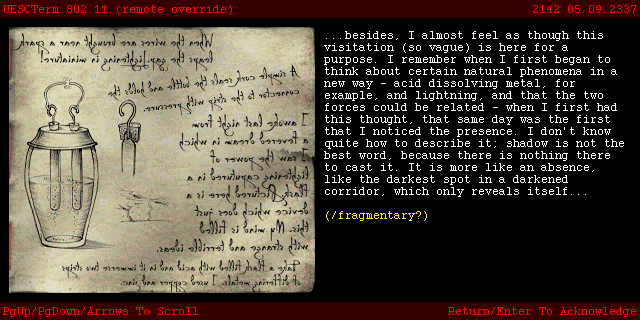 UESCTerm 802.11 (remote override)
2142 05.09.2337
When the wires are brought near a spark
leaps the gap, lightning in miniature!
A simple cork seals the bottle and holds the
connector to the right pressure.
I awoke last night from
a fevered dream in which
I saw the power of
lightning captured in a
flask. Pictured here is a
device which does just
this. My mind is filled
with strange and terrible ideas.
Take a flask filled with acid and in it immerse two strips
of differing metals. I used copper and zinc.
...besides, I almost feel as though this
visitation (so vague) is here for a
purpose. I remember when I first began to
think about certain natural phenomena in a
new way - acid dissolving metal, for
example, and lightning, and that the two
forces could be related - when I first had
this thought, that same day was the first
that I noticed the presence. I don't know
quite how to describe it; shadow is not the
best word, because there is nothing there
to cast it. It is more like an absence,
like the darkest spot in a darkened
corridor, which only reveals itself...
(/fragmentary?)
PgUp/PgDown/Arrows To Scroll
Return/Enter To Acknowledge